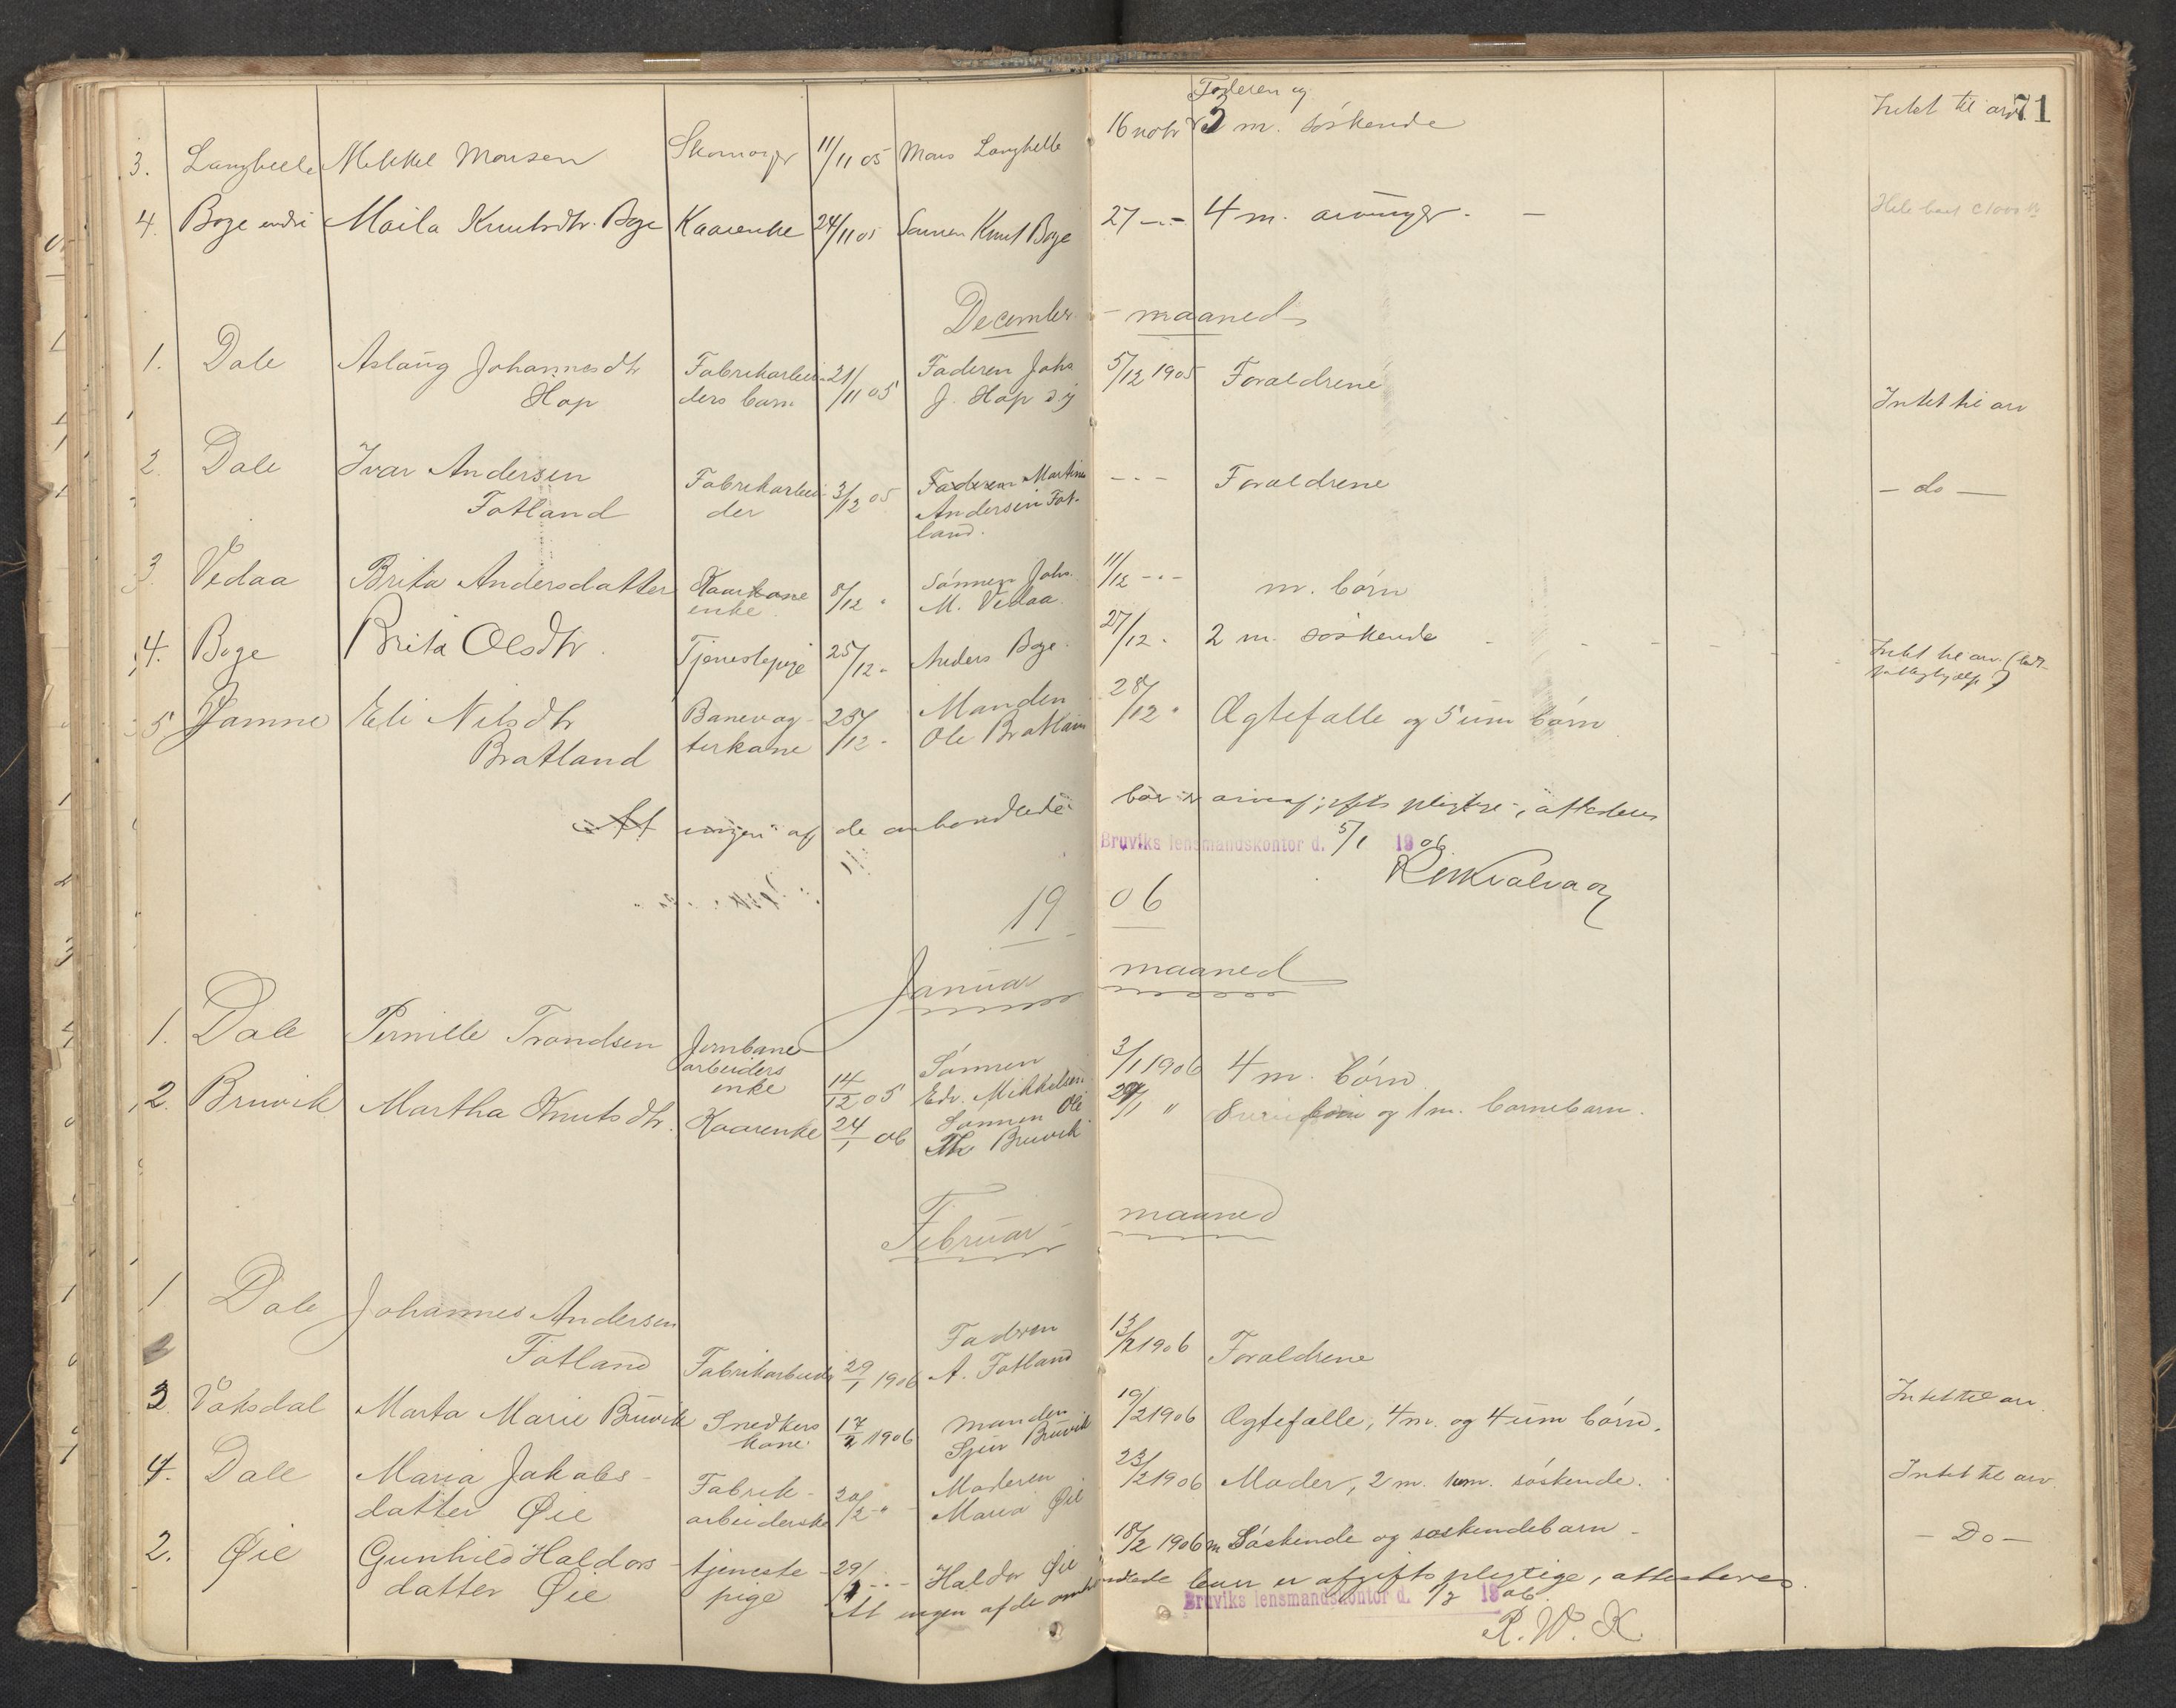 71
Faderen og
3. Langhelle Mikkel Monsen Skomager 11/11 05 Mons Langhelle 16 novbr 2 m. söskende Intet til arv
4. Boge indri Maila Knutsdtr. Boge Kaarenke 24/11 05 Sönnen Knut Boge 27 -.- 4 m. arvinger. -
December - maaned
1. Dale Aslaug Johannesdtr Fabrikarbei- 21/11 05 Faderen Johs 5/12 1905 Foraldrene Intet til arv
Hop ders barn J. Hop
2. Dale Ivar Andersen Fabrikarbei- 3/12 05 Faderen Martin - - - Foraldrene - do -
Fotland der Andersen Fot-
land.
3. Vedaa Brita Andersdatter Kaarkone 8/12 " Sönnen Johs. 11/12 -.- m. börn
enke M. Vedaa.
4. Boge Brita Olsdtr. Tjenestepige 25/12 " Anders Boge. 27/12 " 2 m. söskende - Intet til arv
5 Jamne Eli Nilsdtr Banevog- 23/12 " Manden 28/12 " Ægtefalle og 5 um börn
Bratland terkone Ole Bratland
At ingen af de anbondtede boer er arveafgifts pligtige, attesteres
Bruviks lensmandskontor d. 5/1 1906
1906
Januar maaned
1. Dale Pernille Trondsen Jernbane- Sönnen 3/1 1906 4 m. börn.
arbeiders 14/12 05 Edv. Mikkelsen
enke
2. Bruvik Martha Knutsdtr. Kaarenke 24/1 06 Sönnen Ole 29/1 " og 1 m. barnebarn.
Th. Bruvik
Februar - maaned
1 Dale Johannes Andersen Faderen 13/2 1906 Foraldrene
Fotland Fabrikarbeider 29/1 1906 A. Fotland
3. Vaksdal Marta Marie Bruvik Snedkers 17/2 1906 manden 19/2 1906 Ægtefalle, 4 m. og 4 um börn. Intet til arv.
kone Sjur Bruvik
4. Dale Maria Jakobs- Fabrik- 20/2 -"- Moderen 23/2 1906 Moder, 2 m. 1 um. söskende. Intet til arv
datter Øie arbeiderske Maria Øie
2. Øie Gunhild Haldors- tjeneste- 29/1 -.- Haldor Øie 18/2 1906 m Söskende og söskendebarn - - Do -
datter Øie pige
At ingen af de omhandlede boer er afgifts pligtige, attesteres.
Bruviks lensmandskontor d. 1/3 1906.
R. W. K.